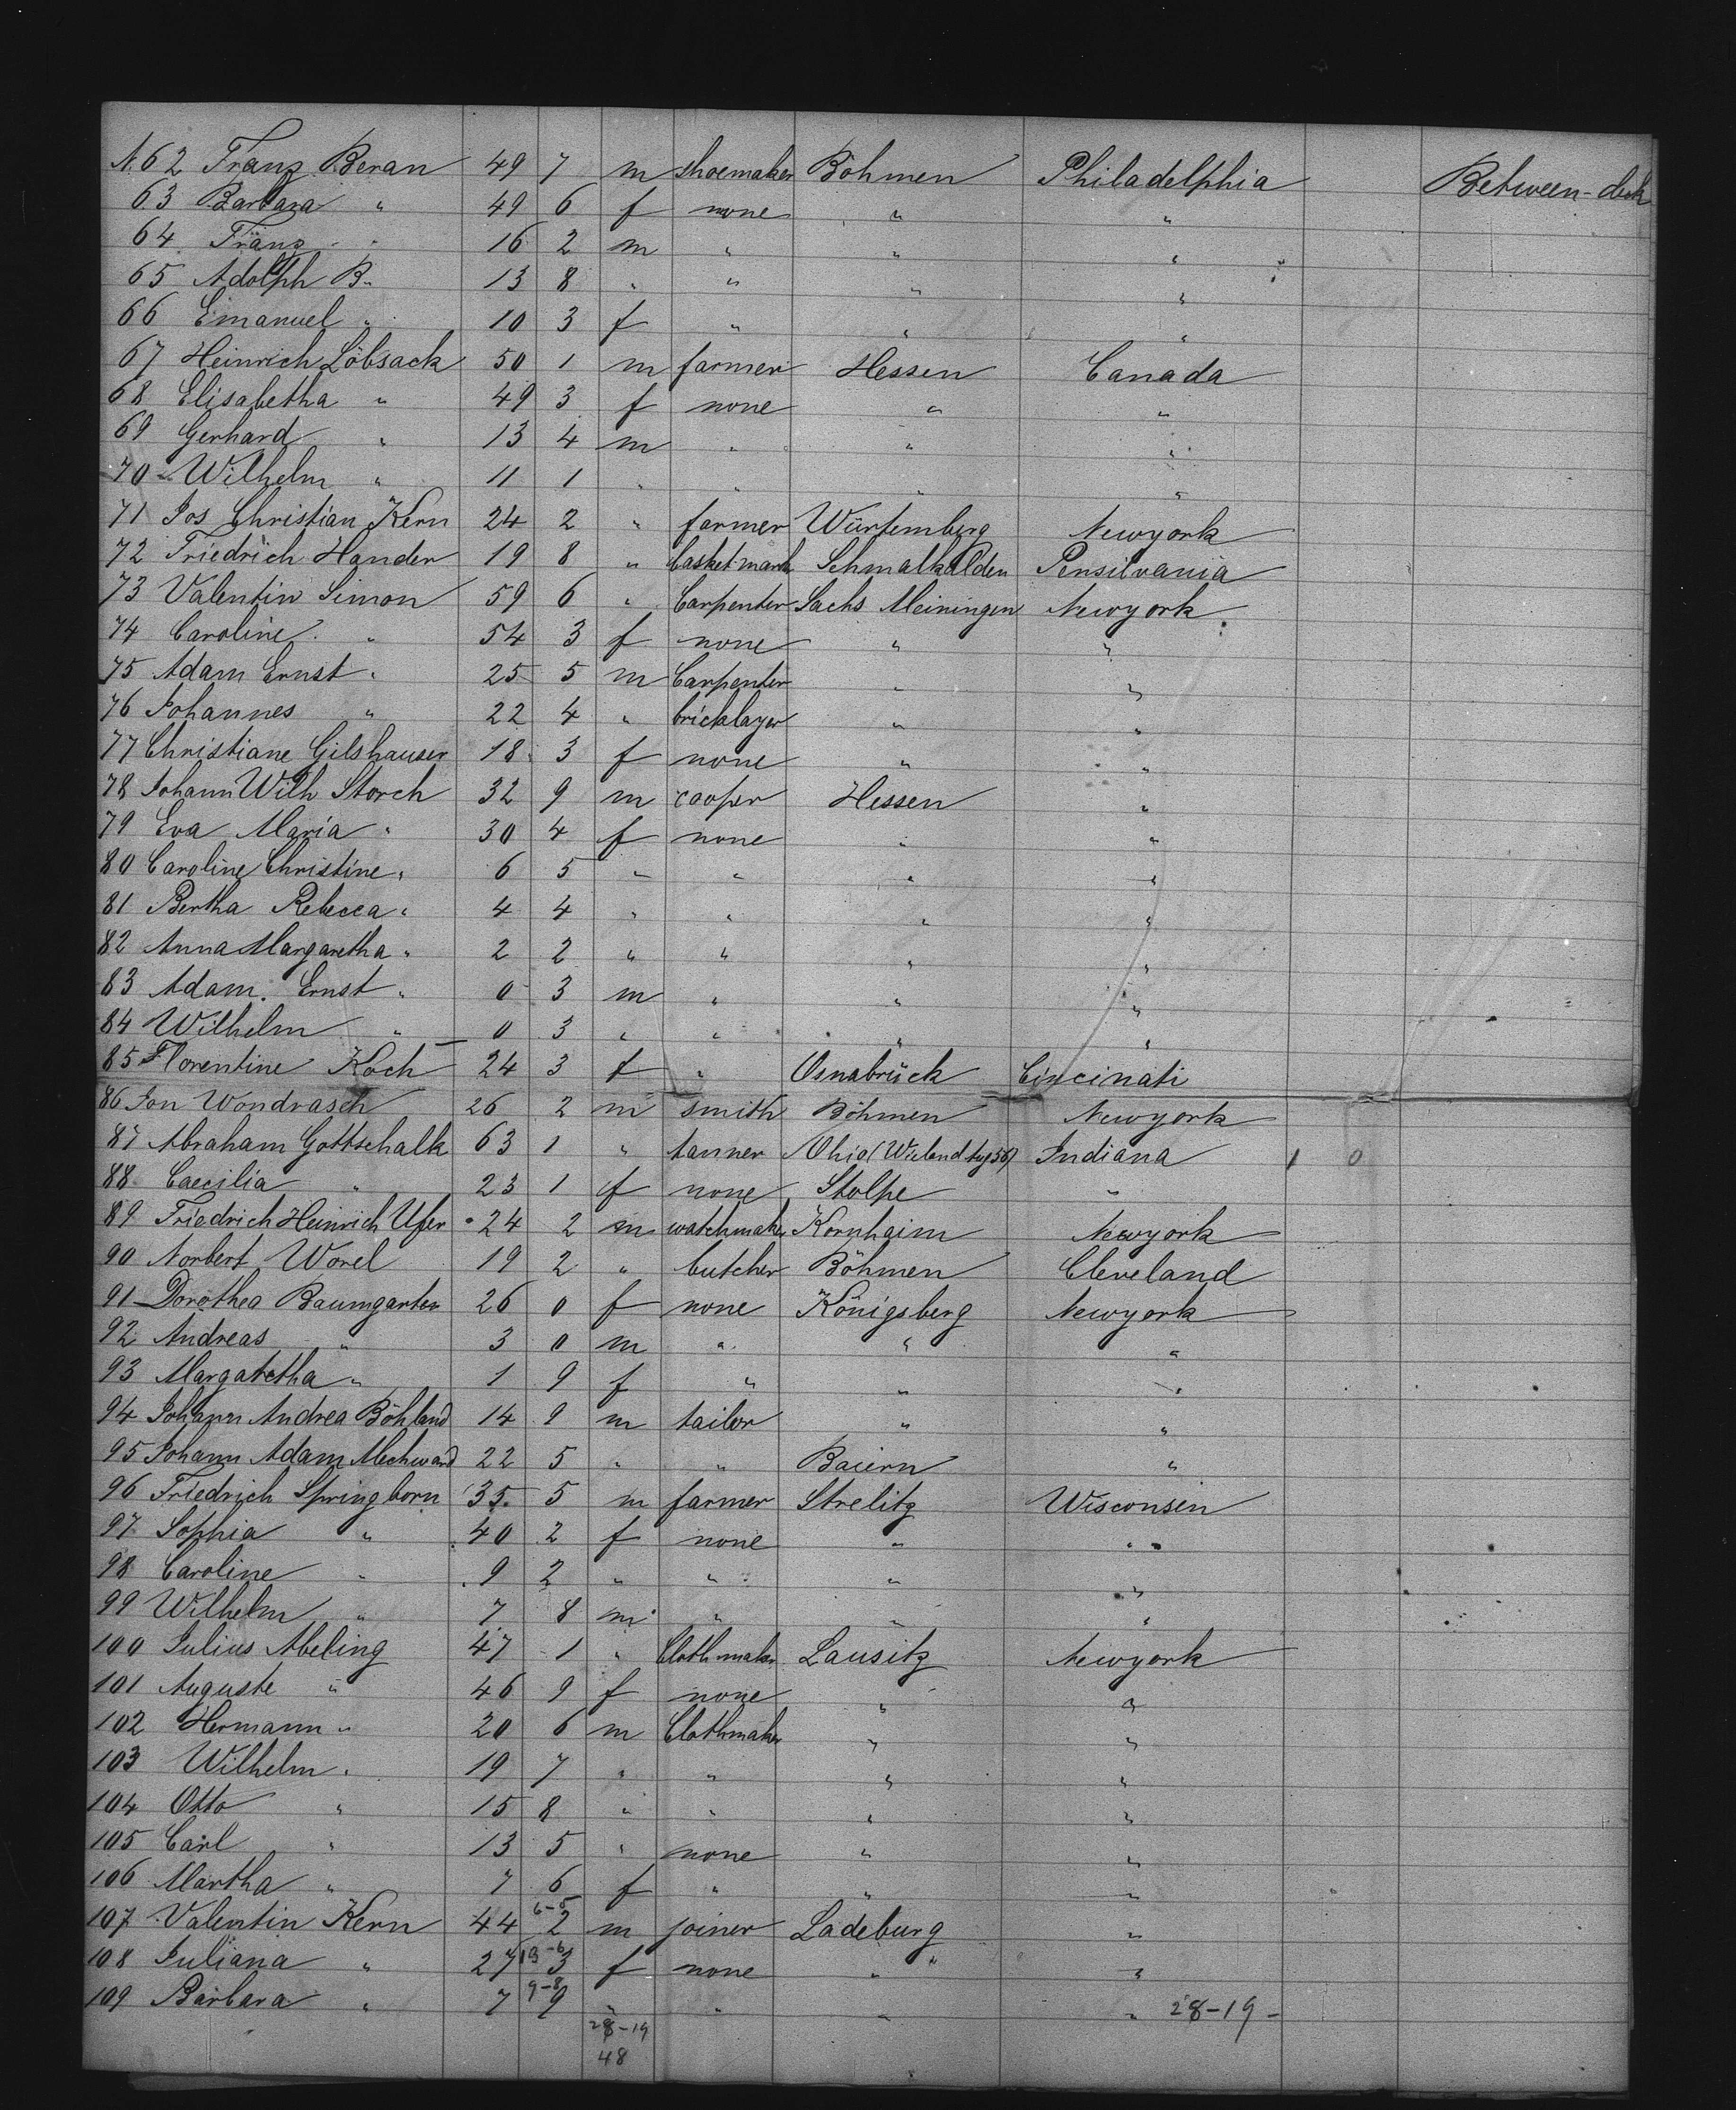 N. 62 Franz Beran 49 7 m shoemaker Böhmen Philadelphia Between-deck
63 Barbara " 49 6 f none " "
64 Franz " 16 2 m " " "
65 Adolph B. 13 8 " " " "
66 Emanuel " 10 3 f " " "
67 Heinrich Löbsack 50 1 m farmer Hessen Canada
68 Elisabetha " 49 3 f none " "
69 Gerhard " 13 4 m " " "
70 Wilhelm " 11 1 " " " "
71 Jos Christian Kern 24 2 " farmer Würtemberg Newyork
72 Friedrich Hander 19 8 " Schmalkalden Pensilvania
73 Valentin Simon 59 6 " Carpenter Sachs Meiningen Newyork
74 Caroline " 54 3 f none " "
75 Adam Ernst " 25 5 m Carpenter " "
76 Johannes " 22 4 " bricklayer " "
77 Christiane Gilshauser 18 3 f none " "
78 Johann Wilh Storch 32 9 m cooper Hessen "
79 Eva Maria " 30 4 f none " "
80 Caroline Christine " 6 5 " " " "
81 Bertha Rebecca " 4 4 " " " "
82 Anna Margaretha " 2 2 " " " "
83 Adam Ernst " 0 3 m " " "
84 Wilhelm " 0 3 " " " "
85 Florentine Koch 24 3 f " Osnabrück Cincinati
86 Jon Wondrasch 26 2 m smith Böhmen Newyork
87 Abraham Gottschalk 63 1 " tanner Ohio Indiana 1 0
88 Caecilia " 23 1 f none Stolpe "
89 Friedrich Heinrich Ufer 24 2 m watchmaker Kornhaim Newyork
90 Norbert Worel 19 2 " butcher Böhmen Cleveland
91 Dorothea Baumgarten 26 0 f none Königsberg Newyork
92 Andreas " 3 0 m " " "
93 Margaretha " 1 9 f " " "
94 Johann Andrea Böhland 14 9 m tailor " "
95 Johann Adam Mechward 22 5 " " Baiern "
96 Friedrich Springborn 35 5 m farmer Strelitz Wisconsin
97 Sophia " 40 2 f none " "
98 Caroline " 9 2 " " " "
99 Wilhelm " 7 8 m " " "
100 Julius Abeling 47 1 " Clothmaker Lausitz Newyork
101 Auguste " 46 9 f none " "
102 Hermann " 20 6 m Clothmaker " "
103 Wilhelm " 19 7 " " " "
104 Otto " 15 8 " " " "
105 Carl " 13 5 " none " "
106 Martha " 7 6 f " " "
107 Valentin Kern 44 6-5 2 m joiner Ladeburg "
108 Juliana " 27 13-6 3 f none " " "
109 Barbara " 7 9-8 9 " " " " 28-19-
28-19
48